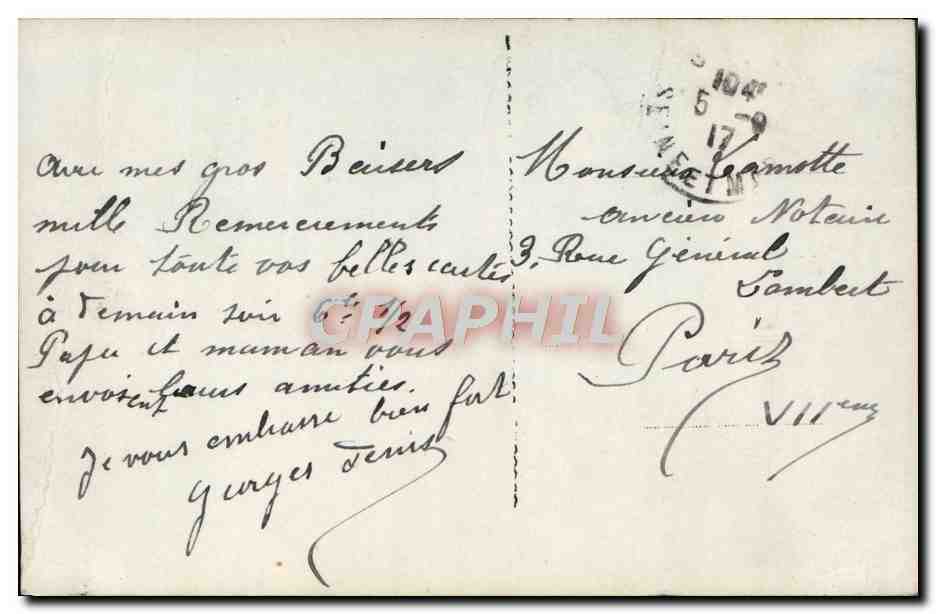 avec mes gros Baisers
mille Remerciements
pour toute vos belles cartes
à demain soir 6h 1/2
Papa et maman vous
envoient leurs amitiés.
Je vous embrasse bien fort
Georges Denis
Monsieur Lamotte
ancien Notaire
3, Rue Général
Lambert
Paris
VIIeme
10 4
5 -9
17
CPAPHIL